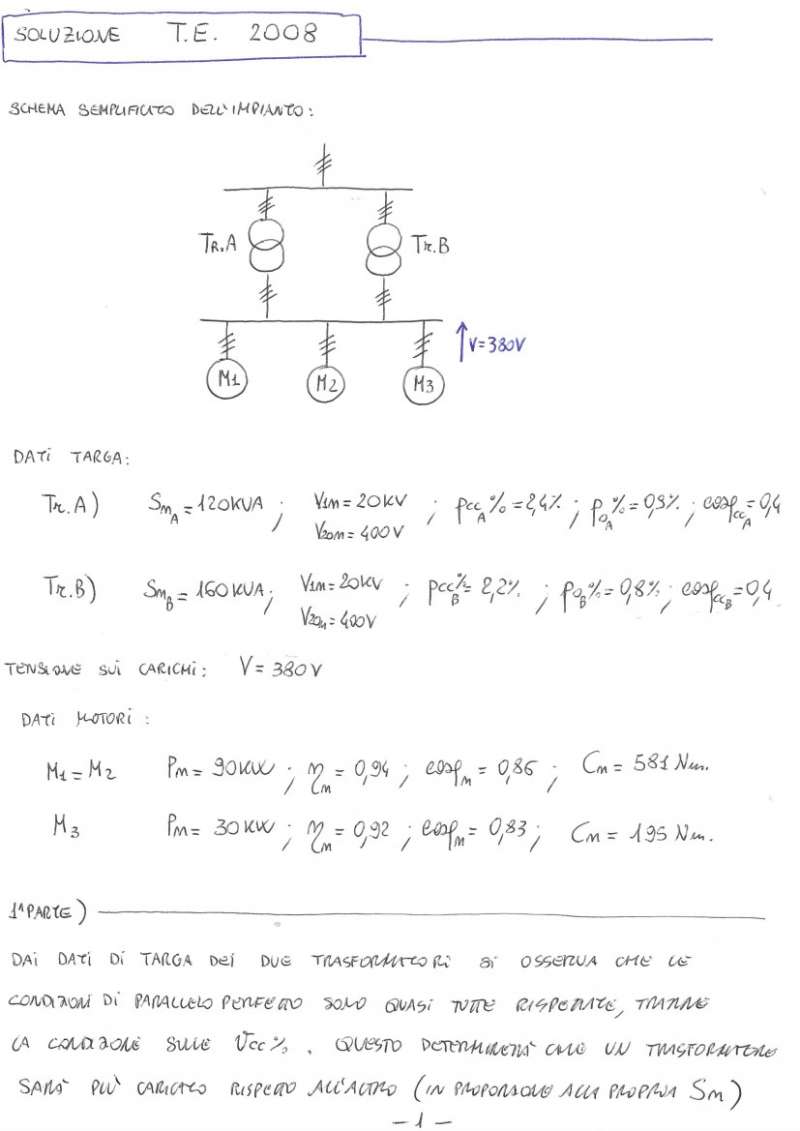 SOLUZIONE T.E. 2008
SCHEMA SEMPLIFICATO DELL'IMPIANTO:
TR.A Tr.B
V=380V
M1 M2 M3
DATI TARGA:
Tr.A) SmA=120KVA; V1m=20KV; pccA%=2,4%; p0A%=0,9%; cosφccA=0,4
V20m=400V
Tr.B) SmB=160KVA; V1m=20KV; pccB%=2,2%; p0B%=0,8%; cosφccB=0,4
V20n=400V
TENSIONE SUI CARICHI: V=380V
DATI MOTORI:
M1=M2 Pm=90KW; ηm=0,94; cosφm=0,86; Cm=581 Nm.
M3 Pm=30KW; ηm=0,92; cosφm=0,83; Cm=195 Nm.
1ª PARTE)
DAI DATI DI TARGA DEI DUE TRASFORMATORI SI OSSERVA CHE LE
CONDIZIONI DI PARALLELO PERFETTO SONO QUASI TUTTE RISPETTATE, TRANNE
LA CONDIZIONE SULLE Vcc%. QUESTO DETERMINERÀ CHE UN TRASFORMATORE
SARÀ PIÙ CARICATO RISPETTO ALL'ALTRO (IN PROPORZIONE ALLA PROPRIA Sm)
-1-